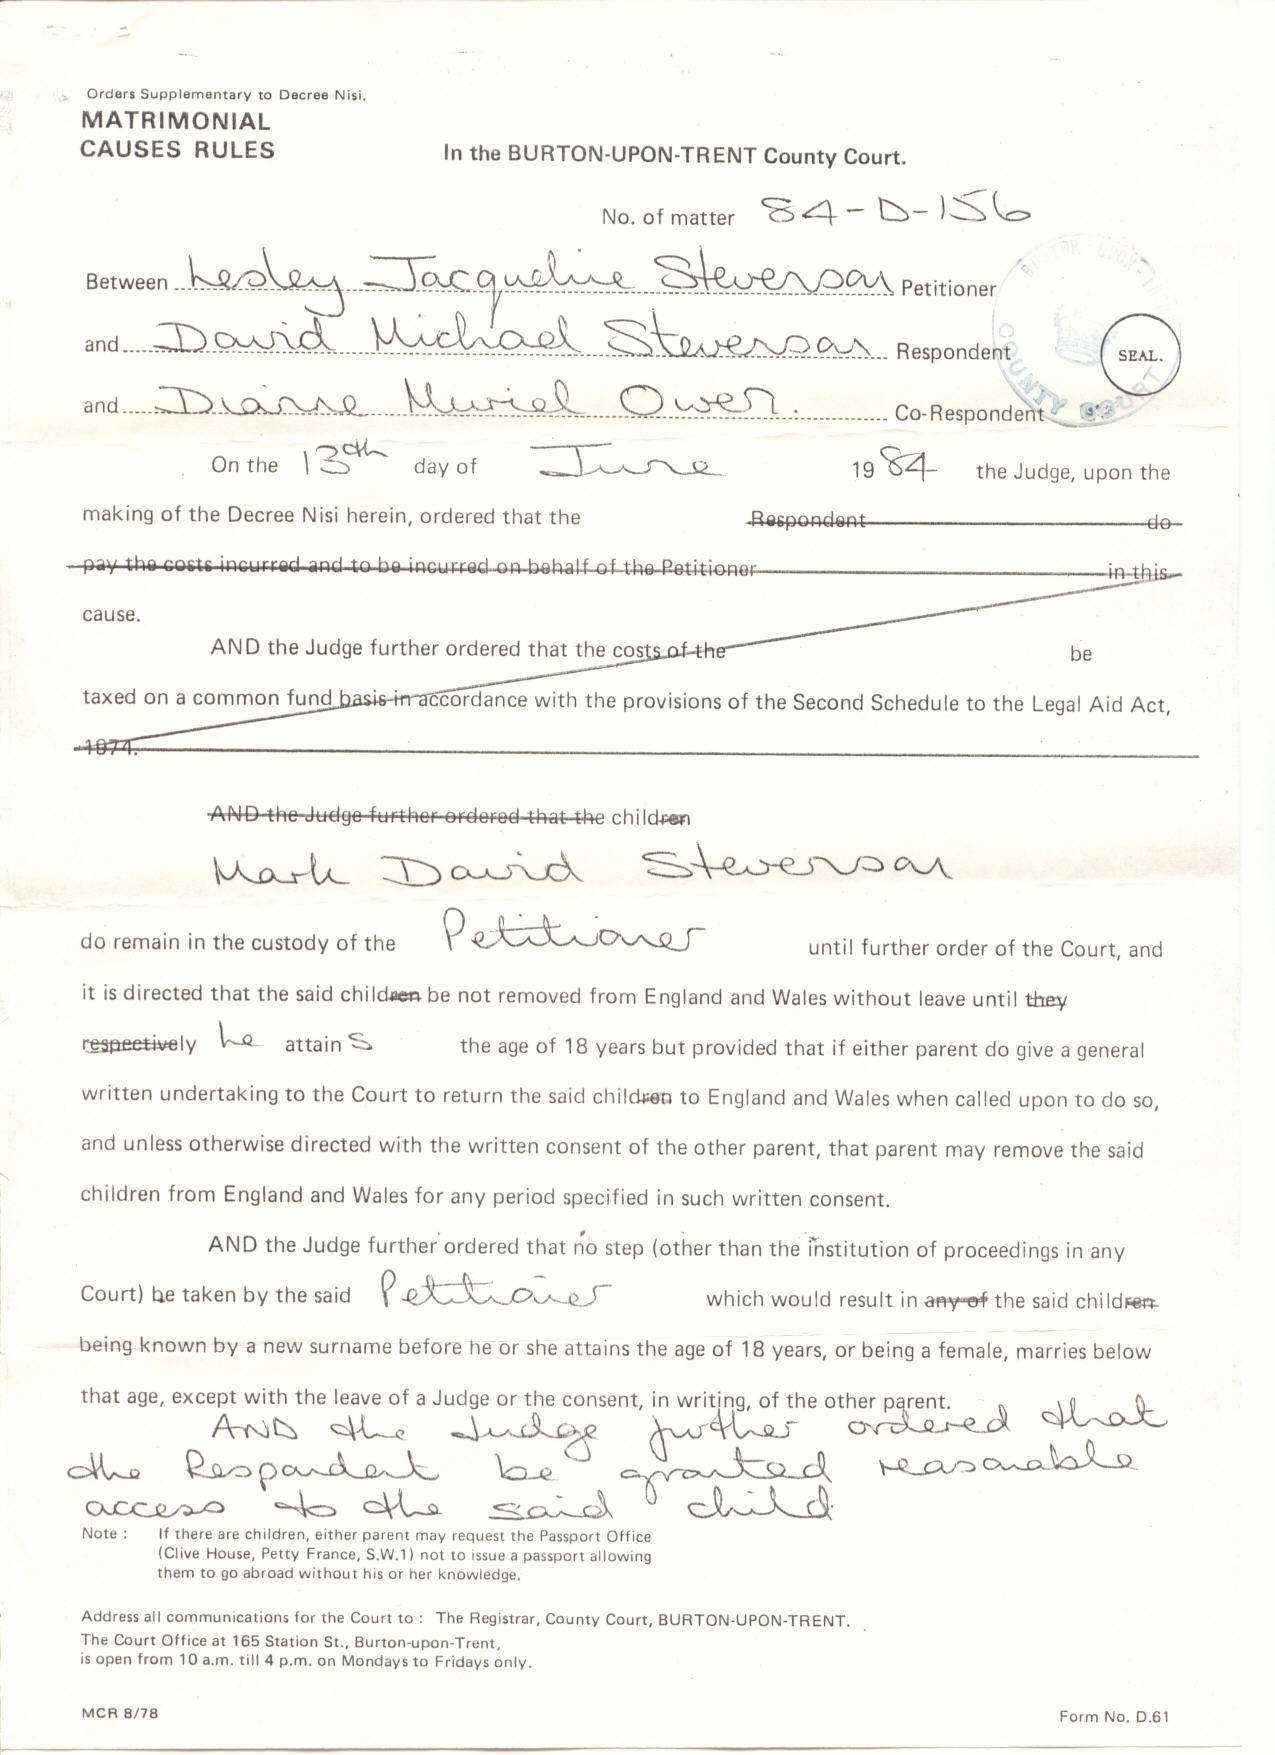 Orders Supplementary to Decree Nisi.
MATRIMONIAL
CAUSES RULES
In the BURTON-UPON-TRENT County Court.
No. of matter 84-D-156
Between Lesley Jacqueline Stevenson Petitioner
and David Michael Stevenson Respondent
SEAL.
COUNTY COURT
and Dianne Muriel Owen. Co-Respondent
On the 13th day of June 1984 the Judge, upon the
making of the Decree Nisi herein, ordered that the Respondent do
pay the costs incurred and to be incurred on behalf of the Petitioner in this
cause.
AND the Judge further ordered that the costs of the be
taxed on a common fund basis in accordance with the provisions of the Second Schedule to the Legal Aid Act,
1974.
AND the Judge further ordered that the children
Mark David Stevenson
do remain in the custody of the Petitioner until further order of the Court, and
it is directed that the said children be not removed from England and Wales without leave until they
respectively he attains the age of 18 years but provided that if either parent do give a general
written undertaking to the Court to return the said children to England and Wales when called upon to do so,
and unless otherwise directed with the written consent of the other parent, that parent may remove the said
children from England and Wales for any period specified in such written consent.
AND the Judge further ordered that no step (other than the institution of proceedings in any
Court) be taken by the said Petitioner which would result in any of the said children
being known by a new surname before he or she attains the age of 18 years, or being a female, marries below
that age, except with the leave of a Judge or the consent, in writing, of the other parent.
AND the Judge further ordered that
the Respondent be granted reasonable
access to the said child
Note : If there are children, either parent may request the Passport Office
(Clive House, Petty France, S.W.1) not to issue a passport allowing
them to go abroad without his or her knowledge.
Address all communications for the Court to : The Registrar, County Court, BURTON-UPON-TRENT.
The Court Office at 165 Station St., Burton-upon-Trent,
is open from 10 a.m. till 4 p.m. on Mondays to Fridays only.
MCR 8/78
Form No. D.61